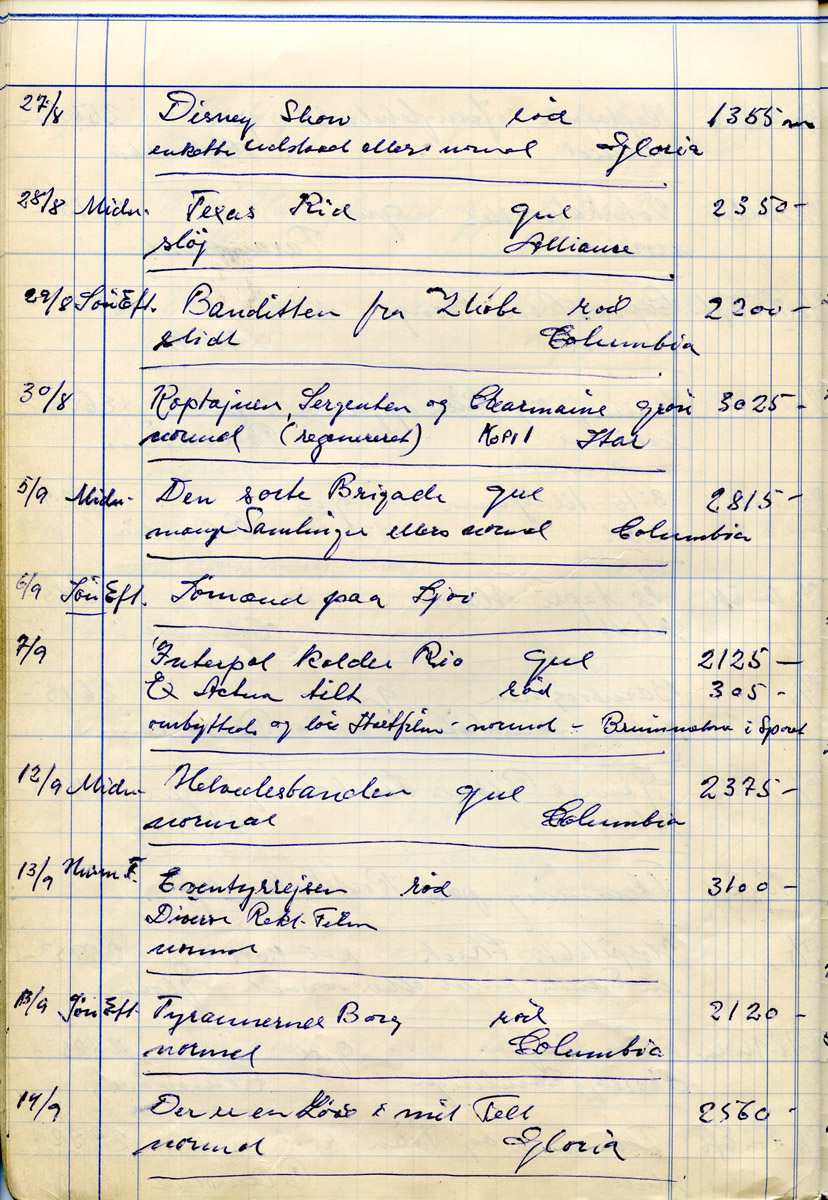 27/8 Disney Show rød 1355 m
enkelte udslaaed ellers normal Gloria
28/8 Midn. Texas Kid gul 2350 -
sløj Alliance
29/8 Søn Eft. Banditten fra Zhobe rød 2200 -
slidt Columbia
30/8 Kaptajnen, Sergenten og Charmaine grøn 3025 -
normal (regenereret) Kopi 1 Star
5/9 Midn. Den sorte Brigade gul 2815 -
mange Samlinger ellers normal Columbia
6/9 Søn Eft. Sømænd paa Sjov
7/9 Interpol kalder Rio gul 2125 -
Ex Actua tilt rød 305 -
ombyttede og løse Startfilm - normal - i Sporet
12/9 Midn. Helvedesbanden gul 2375 -
normal Columbia
13/9 F. Eventyrrejsen rød 3100 -
Diverse Rekl. Film
normal
13/9 Søn Eft. Tyrannernes Borg rød 2120 -
normal Columbia
14/9 Der er en Løve i mit Telt 2560 -
normal Gloria